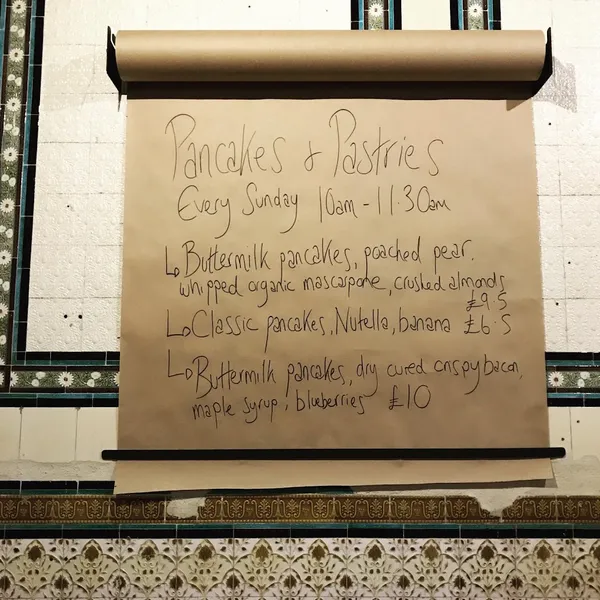 Pancakes & Pastries
Every Sunday 10am - 11.30am
Buttermilk pancakes, poached pear,
whipped organic mascarpone, crushed almonds
£9.5
Classic pancakes, Nutella, banana £6.5
Buttermilk pancakes, dry cured crispy bacon,
maple syrup, blueberries £10